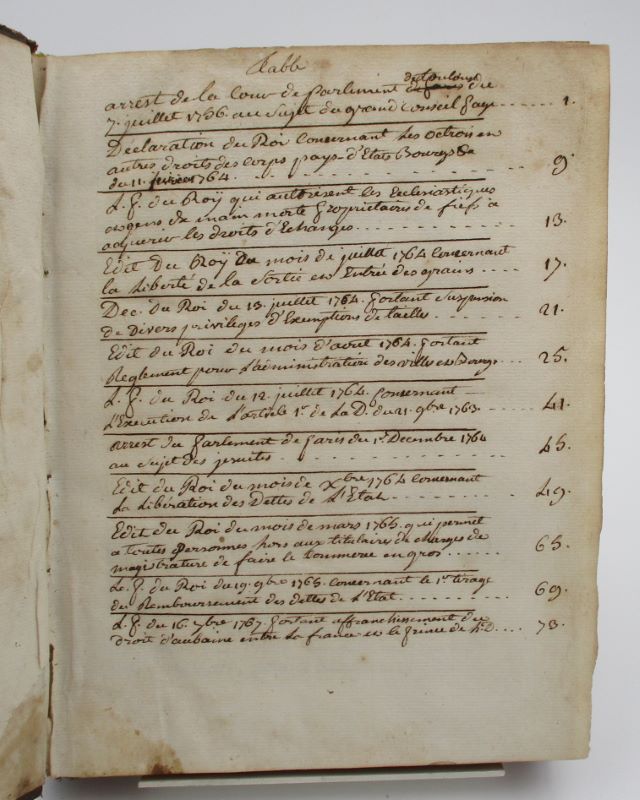 Table
de Toulouse
arrest de la Cour de Parlement du
7. juillet 1756. au Sujet du grand Conseil page 1.
Declaration du Roi Concernant les octrois et
autres droits des corps pays d'Etats Bourgs &a
du 11. fevrier 1764. 9
L. P. du Roy qui autorisent les Ecclesiastiques
et gens de main morte proprietaires de fiefs a
acquerir les droits d'Echanges 13.
Edit Du Roy Du mois de juillet 1764 concernant
la Liberté de la Sortie et Entrée des grains 17.
Dec. du Roi du 13. juillet 1764. portant Suspension
de Divers privileges d'Exemptions de tailles 21.
Edit du Roi du mois d'avril 1764. portant
Reglement pour L'administration des villes et Bourgs 25.
L. P. du Roi du 12. juillet 1764. Concernant
L'Execution de L'article 1er de La D. du 21. 9bre 1763. 41.
arrest du parlement de paris du 1er Decembre 1764
au sujet des jesuites 45.
Edit du Roi du mois de Xbre 1764 Concernant
La Libération des Dettes de L'Etat 49.
Edit du Roi du mois de mars 1765. qui permet
a toutes personnes, hors aux titulaires de charges de
magistrature de faire le Commerce en gros 65.
Le. P. du Roi du 19. 9bre 1765. concernant le 1er tirage
du Remboursement des dettes de L'Etat 69.
L. P. du 16. 7bre 1767. portant affranchissement du
Droit d'aubaine entre La france et le prince de 73.